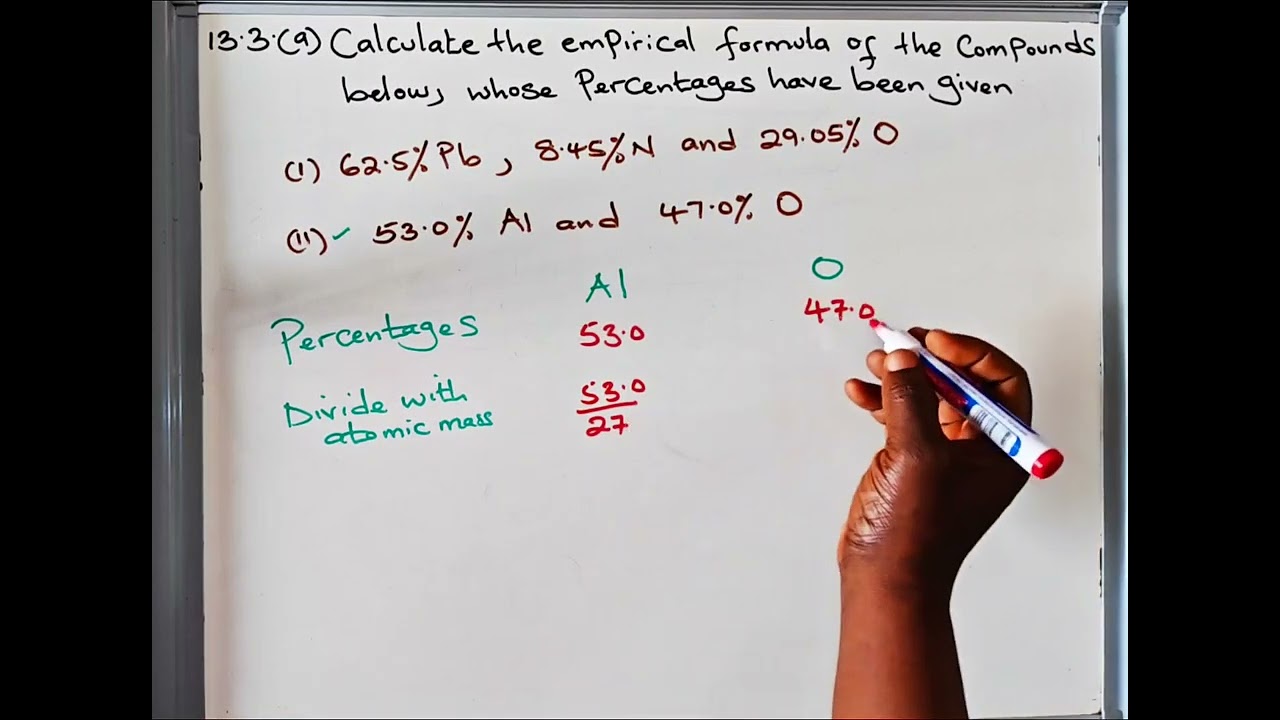 13.3.(a) Calculate the empirical formula of the Compounds
below, whose Percentages have been given
(I) 62.5% Pb, 8.45% N and 29.05% O
(II) ✓ 53.0% Al and 47.0% O
Al O
Percentages 53.0 47.0
Divide with atomic mass 53.0/27